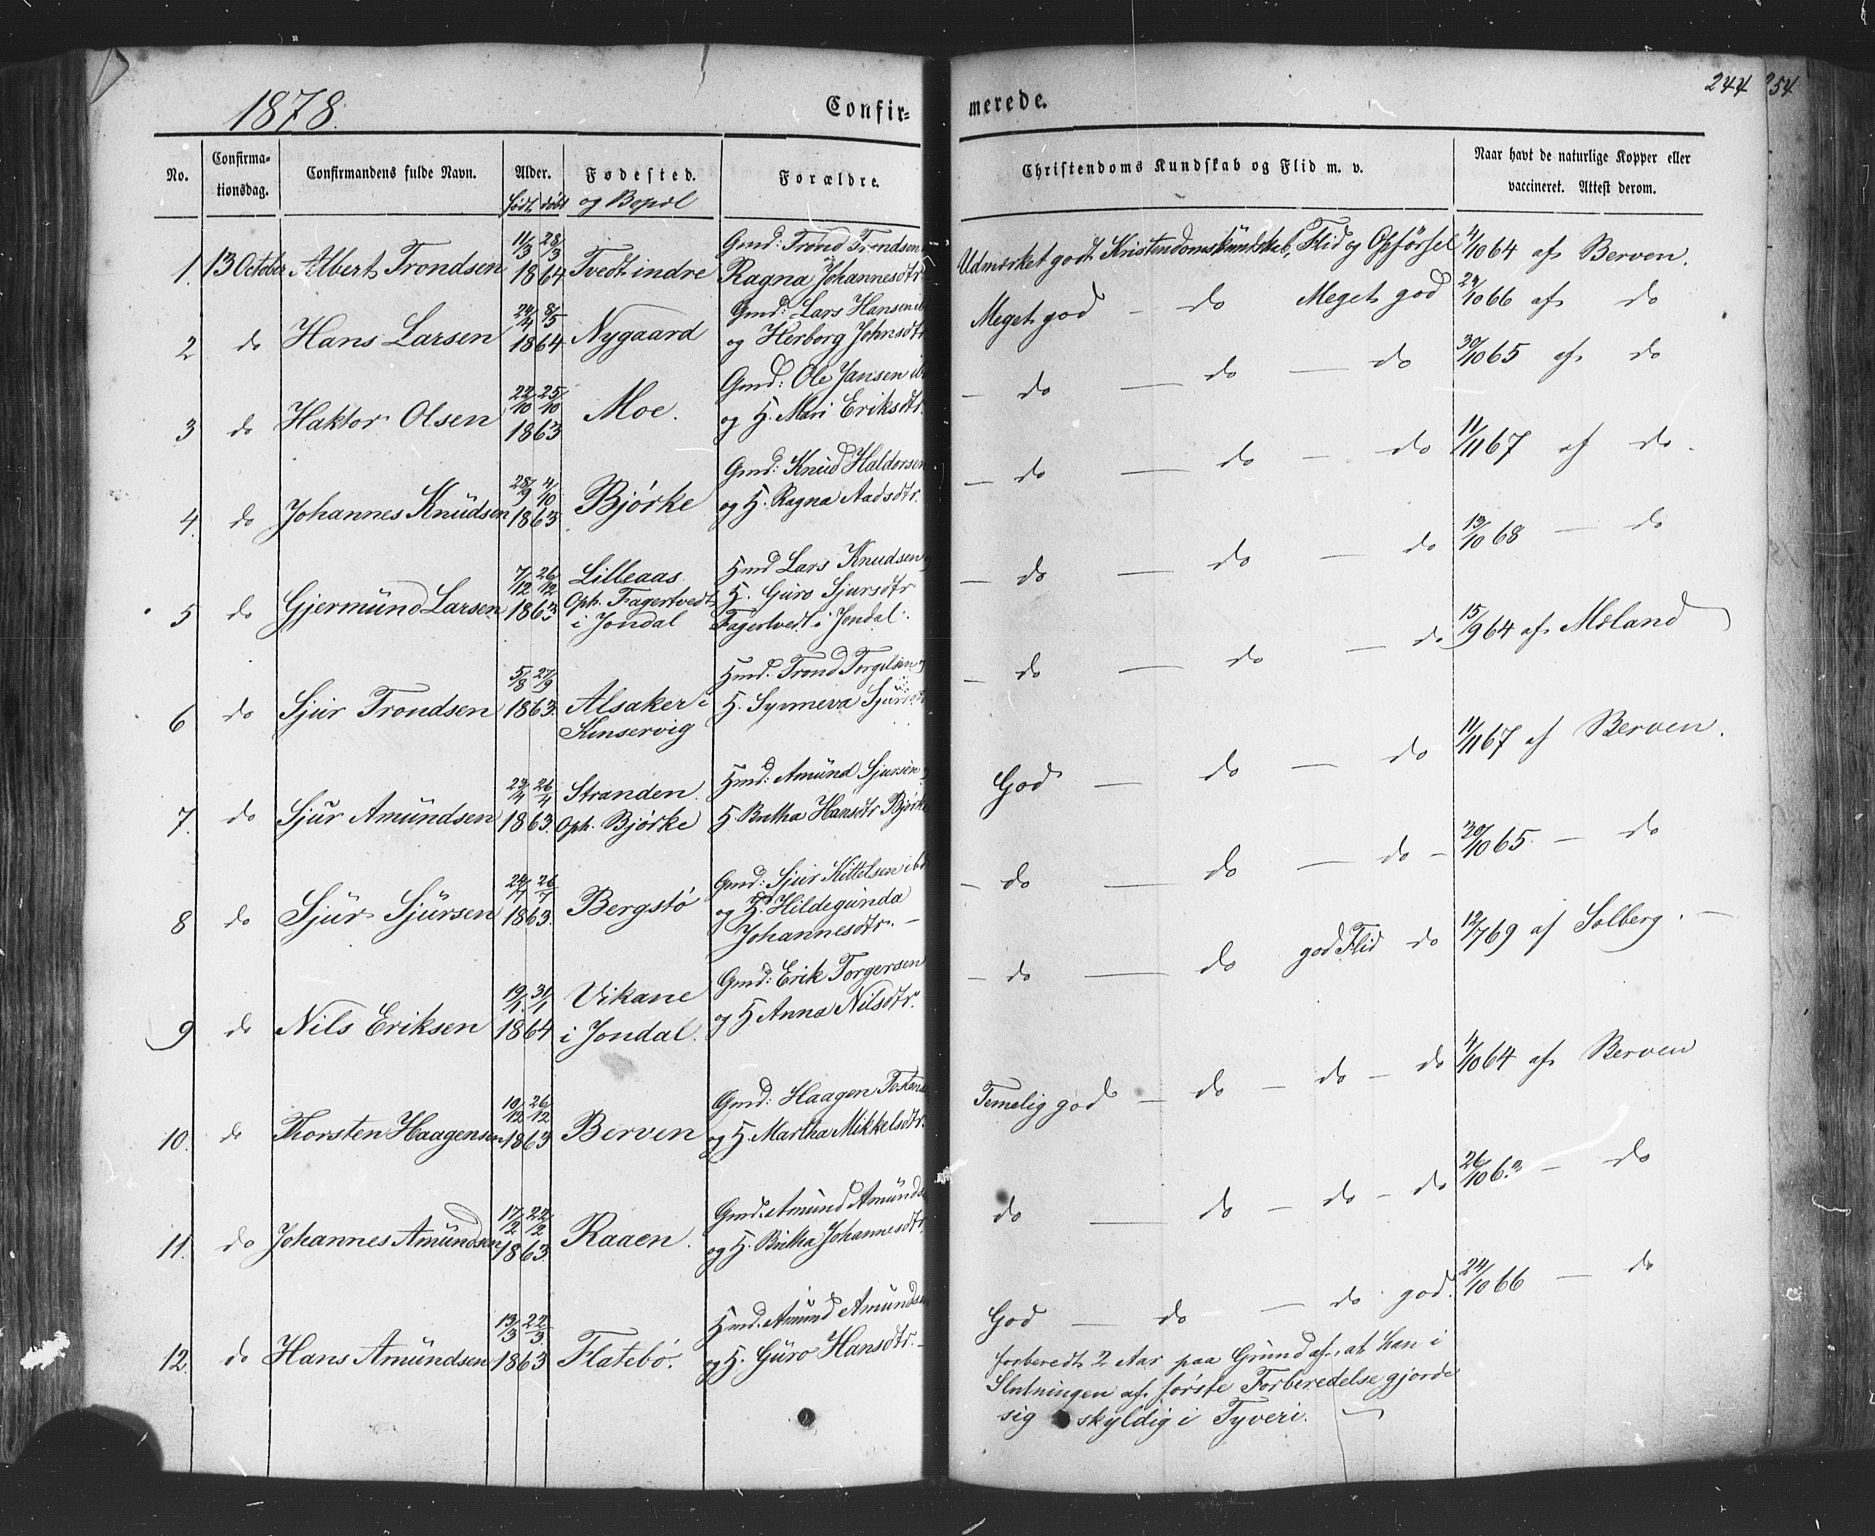 1878.
Confir-
merede.
244
254
No.
Confirma-
tionsdag.
Confirmandens fulde Navn.
Alder.
født døbt
Fødested.
og Bopæl
Forældre.
Christendoms Kundskab og Flid m. v.
Naar havt de naturlige Kopper eller
vaccineret. Attest derom.
1. 13 October Albert Trondsen 11/3 28/3 1864 Tvedt indre
Gmd: Trond Trondsen
Ragna Johannesdtr
Udmærket godt Kristendomskundskab, Flid og Opførsel 4/10 64 af Berven.
2 do Hans Larsen 24/4 8/5 1864 Nygaard
Gmd: Lars Hansen ibd
og Herborg Johnsdtr
Meget god - do Meget god 24/10 66 af do
3 do Haktor Olsen 22/10 25/10 1863 Moe.
Gmd: Ole Jansen ibd
og H. Mari Eriksdtr.
- do - do - do 30/10 65 af do
4. do Johannes Knudsen 28/9 4/10 1863 Bjørke
Gmd: Knud Haldorsen
og H. Ragna Aadsdtr.
- do - do - do 11/11 67 af do.
5 do Gjermund Larsen 7/12 26/12 1863 Lilleaas
Oph. Fagertvedt
i Jondal
Hmd Lars Knudsen
H. Guro Sjursdtr
Fagertvedt i Jondal.
- do - do - do 13/10 68 - do
6 do Sjur Trondsen 5/8 27/9 1863. Alsaker i
Kinservig
Hmd. Trond Torgilsen
H. Synneva
- do - do - do 15/9 64 af Meland
7. do Sjur Amundsen 23/4 26/4 1863. Stranden.
Oph. Bjørke
Hmd: Amund Sjursen
H. Britha Hansdtr Bjørke
God - do - do 11/11 67 af Berven.
8 do Sjur Sjursen 26/7 1863. Bergstø
Gmd: Sjur Kittelsen ibd
og H. Hildegunda
Johannesdtr. -
- do - do - do - 30/10 65 - do
9 do Nils Eriksen 19/1 31/1 1864 Vikane
i Jondal.
Gmd: Erik Torgersen
og H Anna Nilsdtr.
- do - do god Flid do 12/7 69 af Solberg. -
10. do Thorsten Haagensen 10/12 26/12 1863 Berven
Gmd: Haagen
og H. Martha Mikkelsdtr.
Temelig god - do - do - do 4/10 64 af Berven
11. do Johannes Amundsen 17/2 22/2 1863. Raaen.
Gmd. Amund Amundsen
og H. Britha Johannesdtr.
do - do - do - do 26/10 - do
12. do Hans Amundsen 13/3 22/3 1863 Flatebø.
Hmd. Amund Amundsen
og H. Guro Hansdtr. -
God - do - do god. 24/10 66 - do
forberedt 2 Aar paa Grund af, at han i
Slutningen af første Forberedelse gjorde
sig skyldig i Tyveri. -